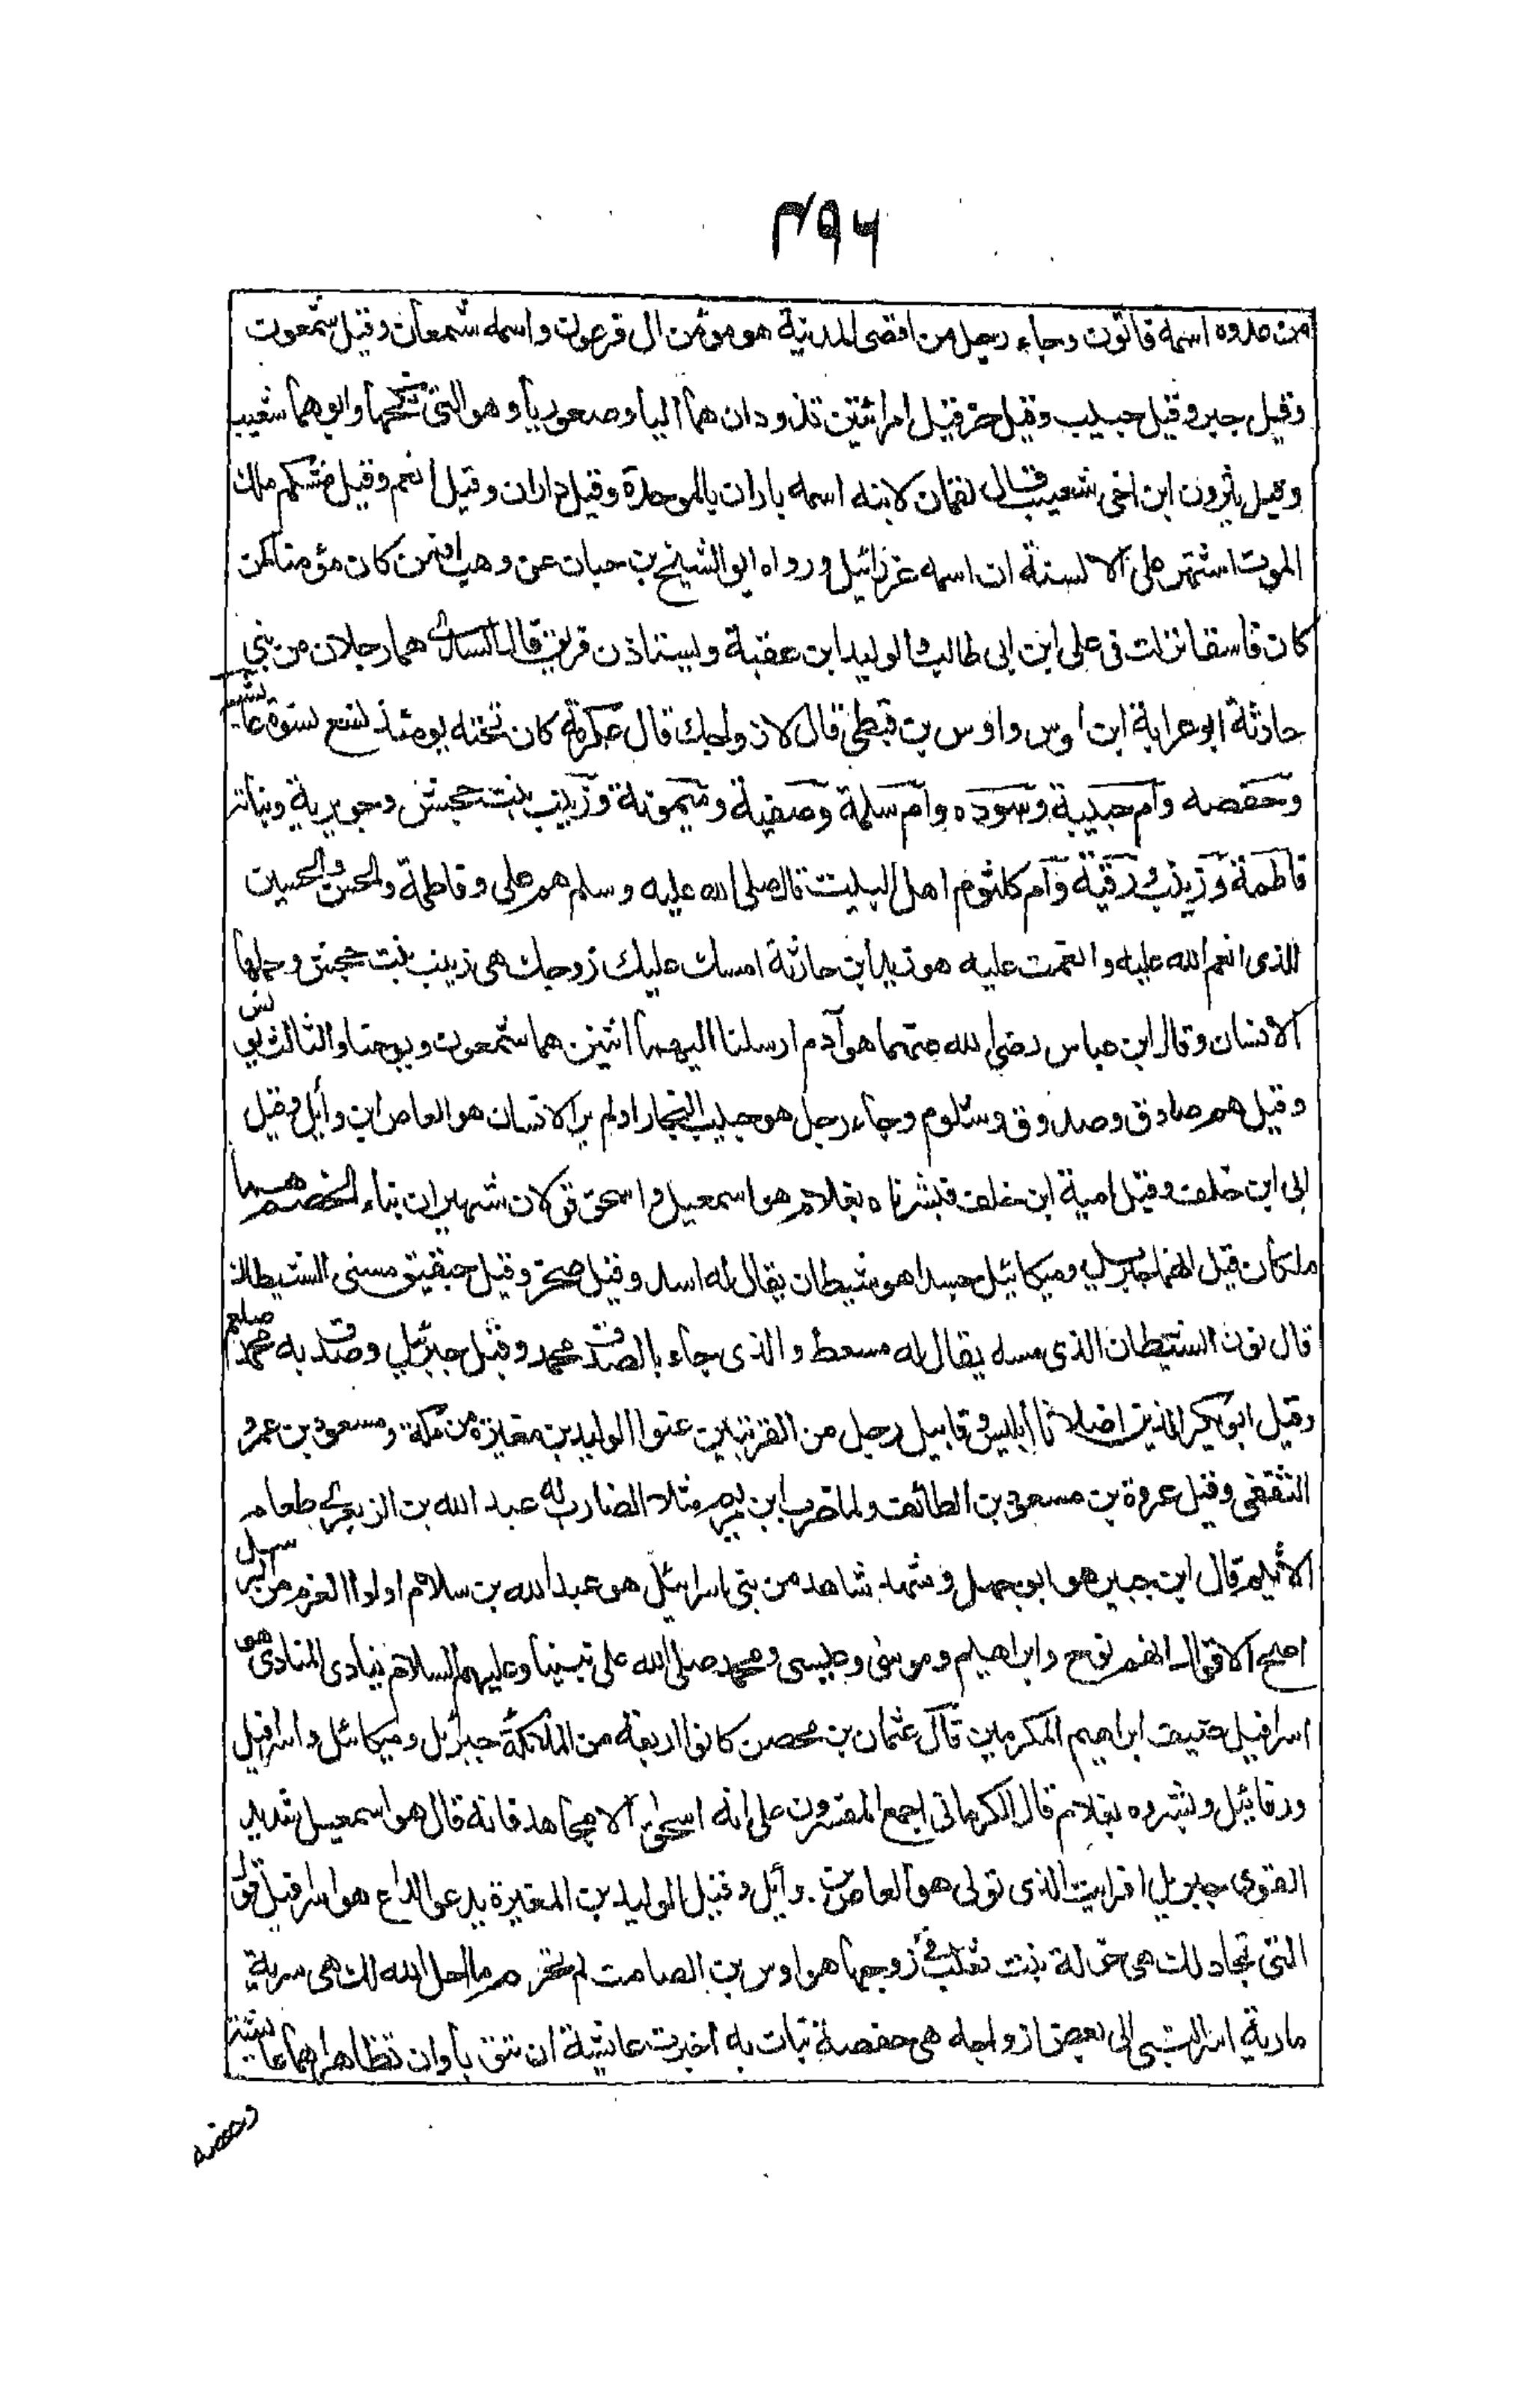 ۳۹۶
من عدوه اسمه قانون وجاء رجل من اقصى المدنية هو مؤمن ال فرعون واسمه شمعان وقيل شمعون
وقيل جبر وقيل حبيب وقيل حزقيل امراتين تذودان هما اليا وصعوريا وهو التى نكحها وابوهما شعيب
وقيل يثرون ابن اخى شعيب قال لقمان لابنه اسمه باران بالموحدة وقيل داران وقيل انعم وقيل مشكم ملك
الموت اشتهر على الالسنة ان اسمه عزرائيل ورواه ابو الشيخ بن حبان عن وهب افمن كان مؤمنا كمن
كان فاسقا نزلت فى على ابن ابى طالب والوليد ابن عقبة ويستاذن فريق قال السدى هما رجلان من بنى
حادثة ابو عرابة ابن اوس واوس بن قبطى قال لازواجك قال عكرمة كان تحته يومئذ تسع نسوة عايشه
وحفصه وام حبيبة وسوده وام سلمة وصفية وميمونة وزينب بنت جحش وجويرية وبناته
فاطمة وزينب ورقية وام كلثوم اهل البيت قال صلى الله عليه وسلم هم على وفاطمة والحسن والحسين
للذى انعم الله عليه وانعمت عليه هو زيد ابن حارثة امسك عليك زوجك هى زينب بنت جحش وحملها
الانسان وقال ابن عباس رضى الله عنهما هو آدم ارسلنا اليهما اثنين هما شمعون ويوحنا والثالث بولس
وقيل هم صادق وصدوق وشلوم وجاء رجل هو حبيب النجار اولم ير الانسان هو العاص ابن وايل وقيل
ابى ابن خلف وقيل امية ابن خلف فبشرناه بغلام هو اسمعيل واسحق قولان شهيران نباء الخصم هما
ملكان قيل انهما جبريل وميكائيل جسدا هو شيطان يقال له اسد وقيل صخر وقيل حبقيق مسنى الشيطان
قال نون الشيطان الذى مسه يقال له مسعط والذى جاء بالصدق محمد وقيل جبرئيل وصدق به محمد صلعم
وقيل ابوبكر الذين اضلانا ابليس وقابيل رجل من القريتين عنوا الوليد بن مغيرة من مكة ومسعود بن عمرو
الثقفى وقيل عروة بن مسعود بن الطائف ولما ضرب ابن مريم مثلا الضارب له عبد الله بن الزبعرى طعام
الاثيم قال ابن جبير هو ابو جهل وشهد شاهد من بنى اسرائيل هو عبد الله بن سلام اولوا العزم من الرسل
اصح الاقوال انهم نوح وابراهيم وموسى وعيسى ومحمد صلى الله على نبينا وعليهم السلام ينادى المنادى هو
اسرافيل ضيف ابراهيم المكرمين قال عثمان بن محصن كانوا اربعة من الملائكة جبرئيل وميكائيل واسرافيل
ورفائيل وبشروه بغلام قال الكرمانى اجمع المفسرون على انه اسحق الا مجاهد فانه قال هو اسمعيل شديد
القوى جبريل افرايت الذى تولى هو العاص بن وأيل وقيل الوليد بن المغيرة يدعو الداع هو اسرافيل قول
التى تجادلك هى خولة بنت ثعلبة فى زوجها هو اوس بن الصامت لم تحرم ما احل الله لك هى سرية
مارية اسر النبى الى بعض ازواجه هى حفصة نبات به اخبرت عائشة ان تتوبا وان تظاهرا هما عائشة
وحفصه